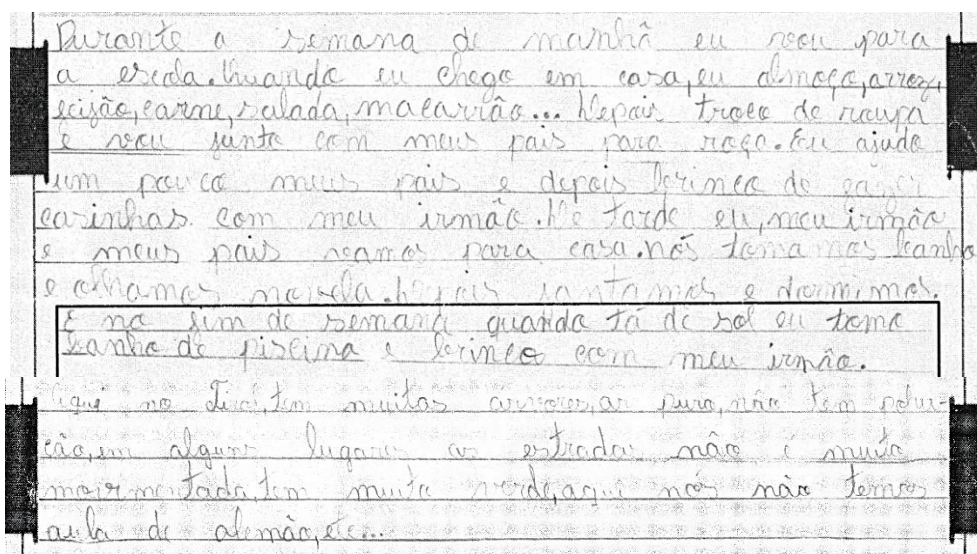 Durante a semana de manhã eu vou para
a escola. Quando eu chego em casa, eu almoço, arroz,
feijão, carne, salada, macarrão... Depois troco de roupa
e vou junto com meus pais para roça. Eu ajudo
um pouco meus pais e depois brinco de fazer
casinhas com meu irmão. De tarde eu, meu irmão
e meus pais vamos para casa. nós tomamos banho
e olhamos novela. Depois jantamos e dormimos.
E no fim de semana quando tá de sol eu tomo
banho de piscina e brinco com meu irmão.
no tem muitas arvores, ar puro, não tem polui-
ção, em alguns lugares as estradas não é muito
tem muito verde, aqui nós não temos
aula de alemão, etc...